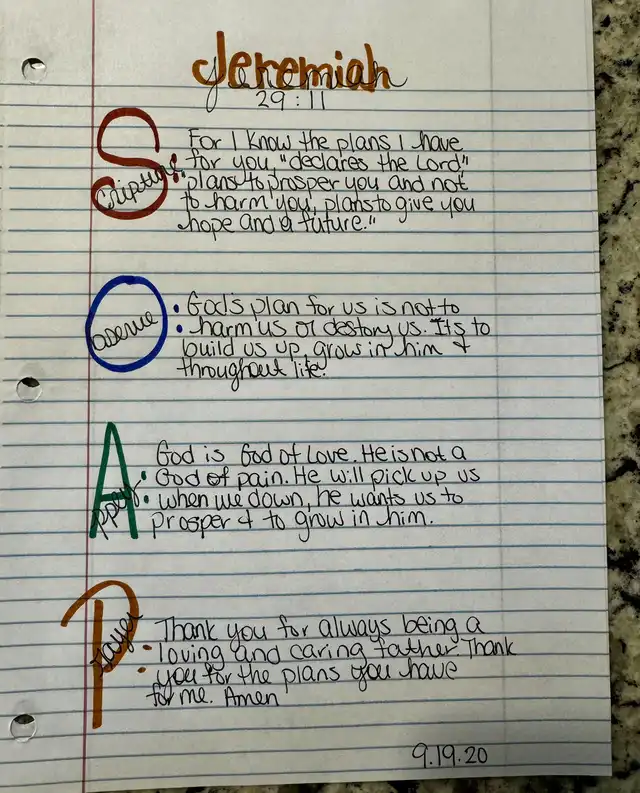 Jeremiah
29:11
Scripture: For I know the plans I have
for you, "declares the Lord"
plans to prosper you and not
to harm you, plans to give you
hope and a future."
Oserve: God's plan for us is not to
harm us or destory us. Its to
build us up, grow in him &
throughout life.
Apply: God is God of love. He is not a
God of pain. He will pick up us
when we down, he wants us to
prosper & to grow in him.
Prayer: Thank you for always being a
loving and caring father Thank
you for the plans you have
for me. Amen
9.19.20